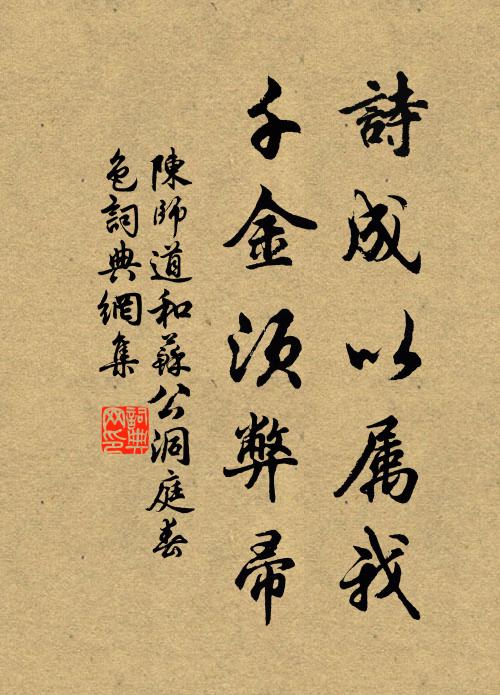 詩成以属我
千金須弊帚
陳師道和蘇公洞庭春
色詞典網集
詞典网印